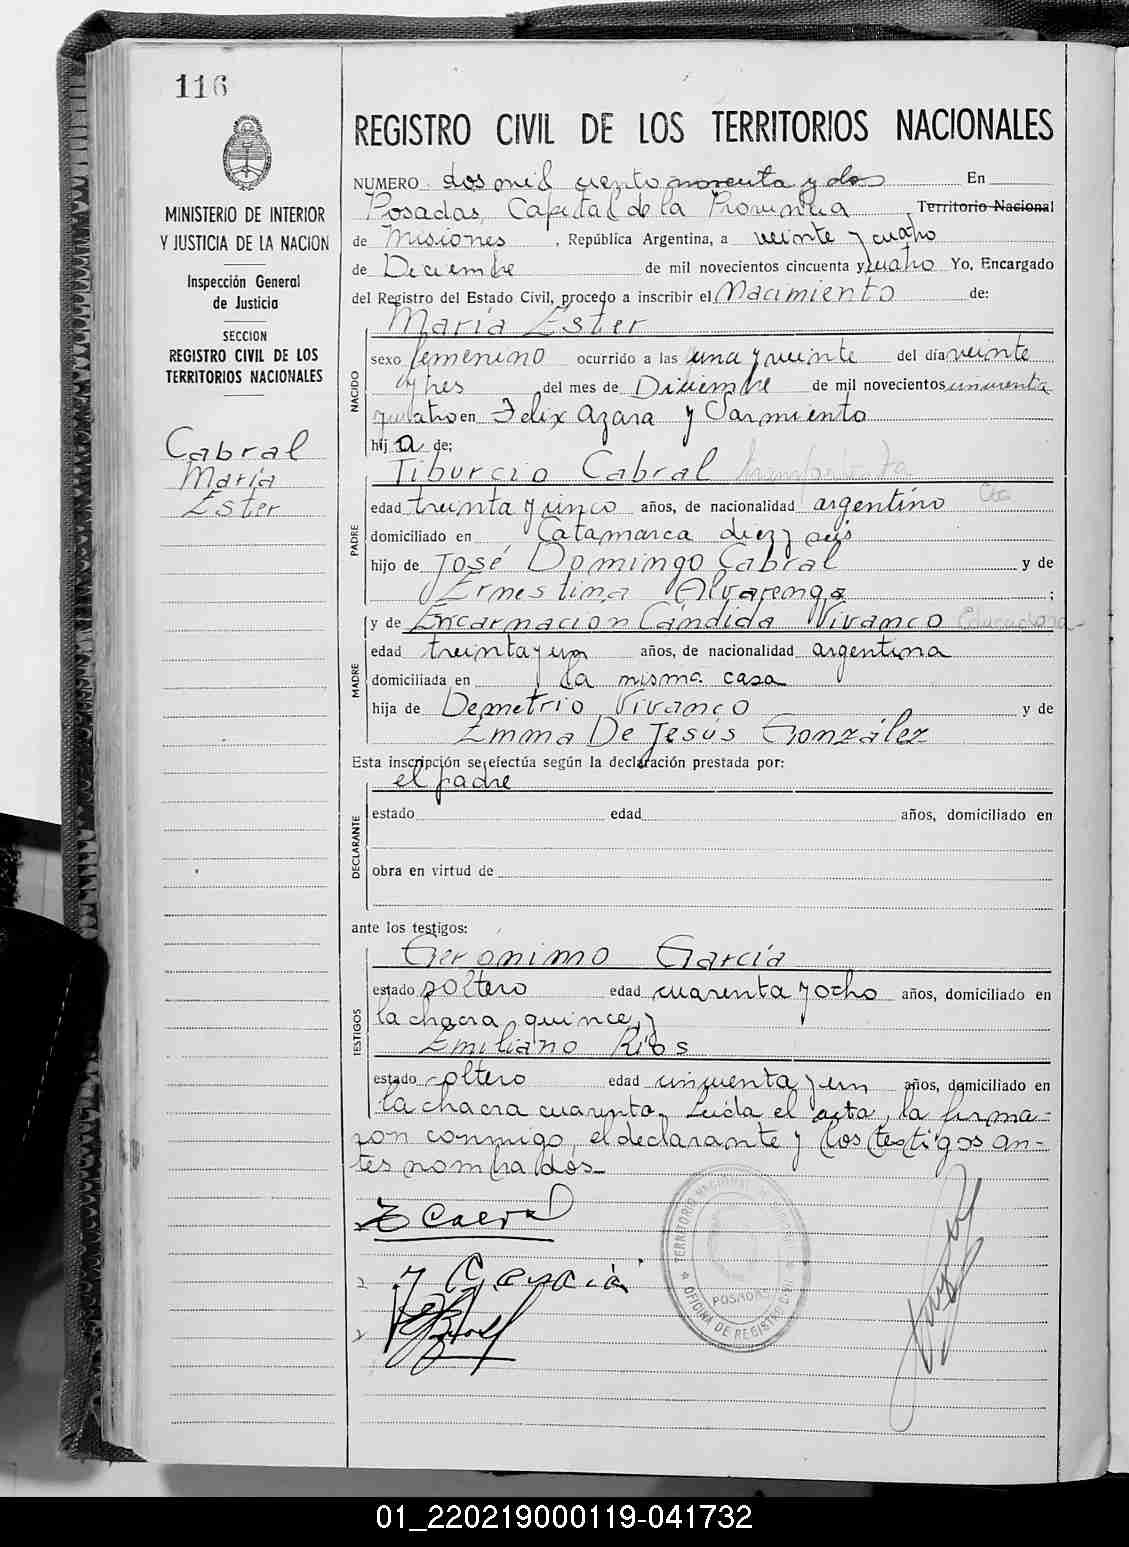 116
REGISTRO CIVIL DE LOS TERRITORIOS NACIONALES
MINISTERIO DE INTERIOR
Y JUSTICIA DE LA NACION
Inspección General
de Justicia
SECCION
REGISTRO CIVIL DE LOS
TERRITORIOS NACIONALES
Cabral
María
Ester
NUMERO dos mil ciento noventa y dos En
Posadas, Capital de la Provincia, Territorio Nacional
de Misiones, República Argentina, a veinte y cuatro
de Diciembre de mil novecientos cincuenta y cuatro Yo, Encargado
del Registro del Estado Civil, procedo a inscribir el Nacimiento de:
María Ester
NACIDO
sexo femenino ocurrido a las una y veinte del día veinte
y tres del mes de Diciembre de mil novecientos cincuenta
y cuatro en Felix Azara y Sarmiento
hij a de:
Tiburcio Cabral
PADRE
edad treinta y cinco años, de nacionalidad argentino
domiciliado en Catamarca diez y seis
hijo de José Domingo Cabral y de
Ernestina Alvarenga ;
y de Encarnación Cándida Vivanco Educadora
MADRE
edad treinta y un años, de nacionalidad argentina
domiciliada en la misma casa
hija de Demetrio Vivanco y de
Emma De Jesús González
Esta inscripción se efectúa según la declaración prestada por:
el padre
DECLARANTE
estado edad años, domiciliado en
obra en virtud de
ante los testigos:
Gerónimo García
TESTIGOS
estado soltero edad cuarenta y ocho años, domiciliado en
la chacra quince, y
Emiliano Ríos
estado soltero edad cincuenta y un años, domiciliado en
la chacra cuarenta. Leída el acta, la firma-
ron conmigo, el declarante y los testigos an-
tes nombrados.
García
TERRITORIO NACIONAL
POSADAS
OFICINA DE REGISTRO CIVIL
01_220219000119-041732